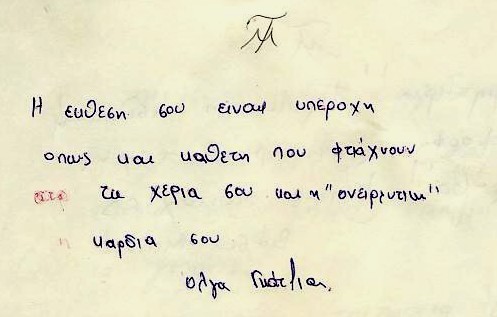 Η εκθεση σου ειναι υπεροχη
οπως και καθετη που φτιάχνουν
τα χέρια σου και η "ονειρευτικη"
καρδια σου
Όλγα